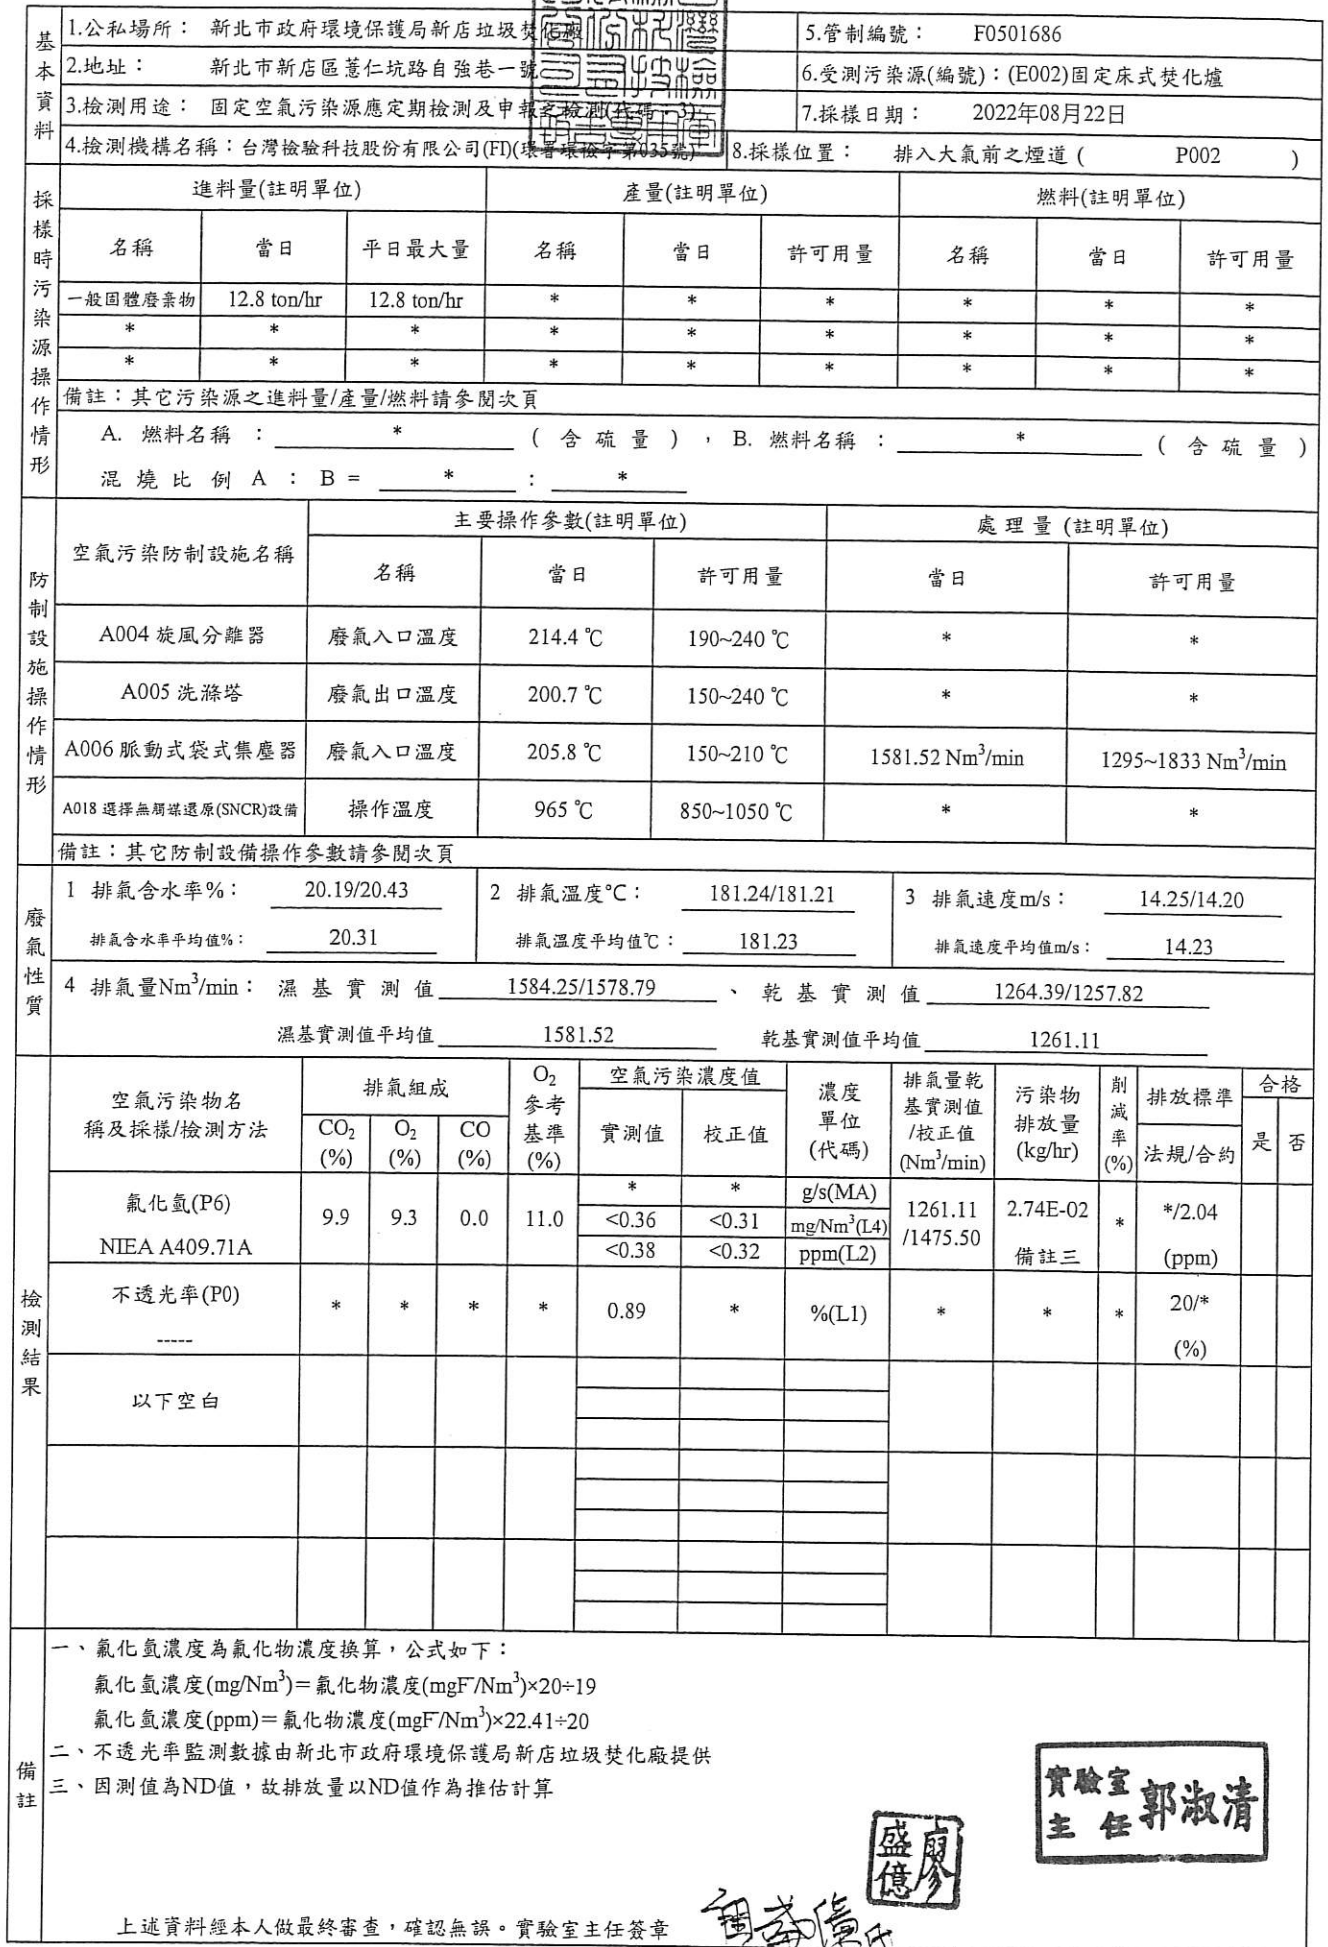 基本資料
1.公私場所： 新北市政府環境保護局新店垃圾焚化廠
5.管制編號： F0501686
2.地址： 新北市新店區薏仁坑路自強巷一號
6.受測污染源(編號)：(E002)固定床式焚化爐
3.檢測用途： 固定空氣污染源應定期檢測及申報之檢測(代碼：3)
7.採樣日期： 2022年08月22日
4.檢測機構名稱：台灣檢驗科技股份有限公司(FI)(環署環檢字第035號)
8.採樣位置： 排入大氣前之煙道 ( P002 )
採樣時污染源操作情形
進料量(註明單位) 產量(註明單位) 燃料(註明單位)
名稱 當日 平日最大量 名稱 當日 許可用量 名稱 當日 許可用量
一般固體廢棄物 12.8 ton/hr 12.8 ton/hr * * * * * *
* * * * * * * * *
* * * * * * * * *
備註：其它污染源之進料量/產量/燃料請參閱次頁
A. 燃料名稱 ： * ( 含 硫 量 ) ，B. 燃料名稱 ： * ( 含 硫 量 )
混 燒 比 例 A : B = * : *
防制設施操作情形
空氣污染防制設施名稱 主要操作參數(註明單位) 處 理 量 (註明單位)
名稱 當日 許可用量 當日 許可用量
A004 旋風分離器 廢氣入口溫度 214.4 ℃ 190~240 ℃ * *
A005 洗滌塔 廢氣出口溫度 200.7 ℃ 150~240 ℃ * *
A006 脈動式袋式集塵器 廢氣入口溫度 205.8 ℃ 150~210 ℃ 1581.52 Nm³/min 1295~1833 Nm³/min
A018 選擇無觸媒還原(SNCR)設備 操作溫度 965 ℃ 850~1050 ℃ * *
備註：其它防制設備操作參數請參閱次頁
廢氣性質
1 排氣含水率%： 20.19/20.43 2 排氣溫度°C： 181.24/181.21 3 排氣速度m/s： 14.25/14.20
排氣含水率平均值%： 20.31 排氣溫度平均值℃： 181.23 排氣速度平均值m/s： 14.23
4 排氣量Nm³/min： 濕 基 實 測 值 1584.25/1578.79 、 乾 基 實 測 值 1264.39/1257.82
濕基實測值平均值 1581.52 乾基實測值平均值 1261.11
檢測結果
空氣污染物名稱及採樣/檢測方法 排氣組成 O₂參考基準(%) 空氣污染濃度值 濃度單位(代碼) 排氣量乾基實測值/校正值(Nm³/min) 污染物排放量(kg/hr) 削減率(%) 排放標準 合格
CO₂(%) O₂(%) CO(%) 實測值 校正值 法規/合約 是 否
氟化氫(P6) * * g/s(MA)
9.9 9.3 0.0 11.0 <0.36 <0.31 mg/Nm³(L4) 1261.11/1475.50 2.74E-02 * */2.04
NIEA A409.71A <0.38 <0.32 ppm(L2) 備註三 (ppm)
不透光率(P0) * * * * 0.89 * %(L1) * * * 20/*
----- (%)
以下空白
備註
一、氟化氫濃度為氟化物濃度換算，公式如下：
氟化氫濃度(mg/Nm³)＝氟化物濃度(mgF⁻/Nm³)×20÷19
氟化氫濃度(ppm)＝氟化物濃度(mgF⁻/Nm³)×22.41÷20
二、不透光率監測數據由新北市政府環境保護局新店垃圾焚化廠提供
三、因測值為ND值，故排放量以ND值作為推估計算
實驗室主任 郭淑清
廖盛億
上述資料經本人做最終審查，確認無誤。實驗室主任簽章